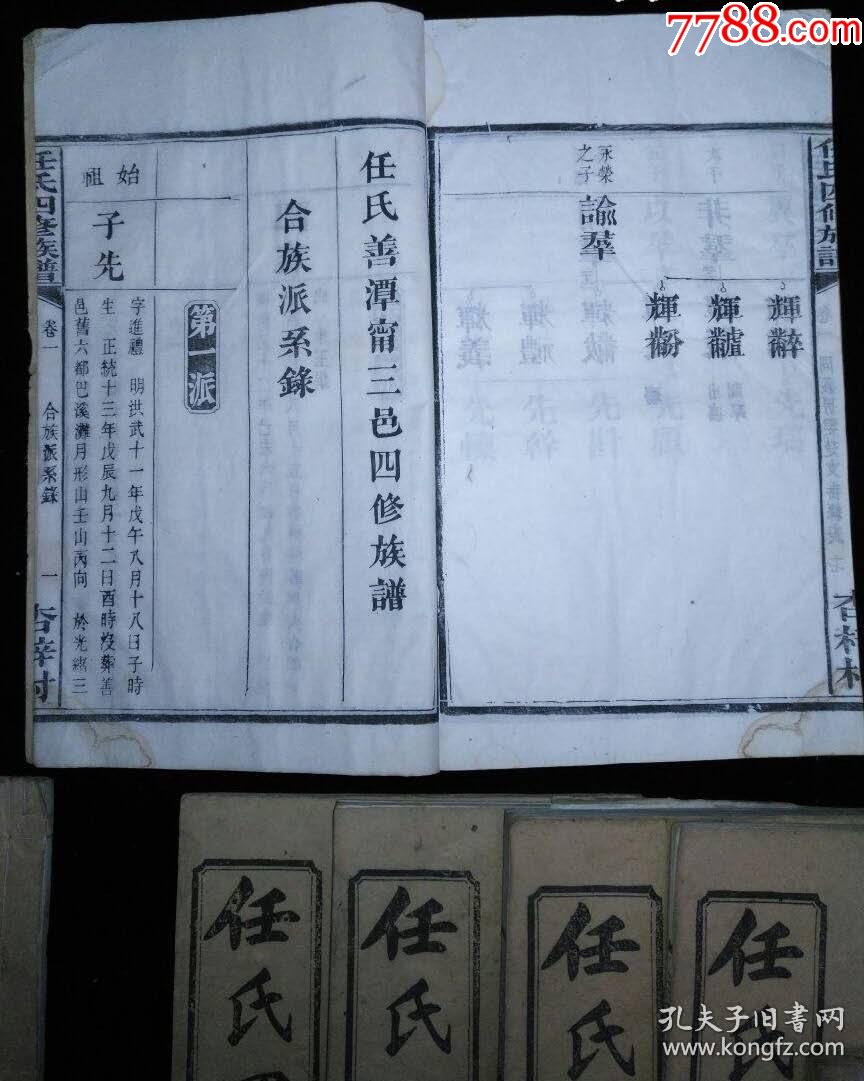 7788.com
永榮
之子
諭羣
輝辭
輝
輝
任氏善潭甯三邑四修族譜
合族派系錄
第一派
始祖
子先
字進禮 明洪武十一年戊午八月十八日子時
生 正統十三年戊辰九月十二日酉時沒葬善
邑舊六都巴溪灘月形山壬山丙向 於光緒三
任氏四修族譜
卷一
合族派系錄
一
杏梓村
任氏四修族譜
任氏
任氏
任氏
任氏
孔夫子旧书网
www.kongfz.com